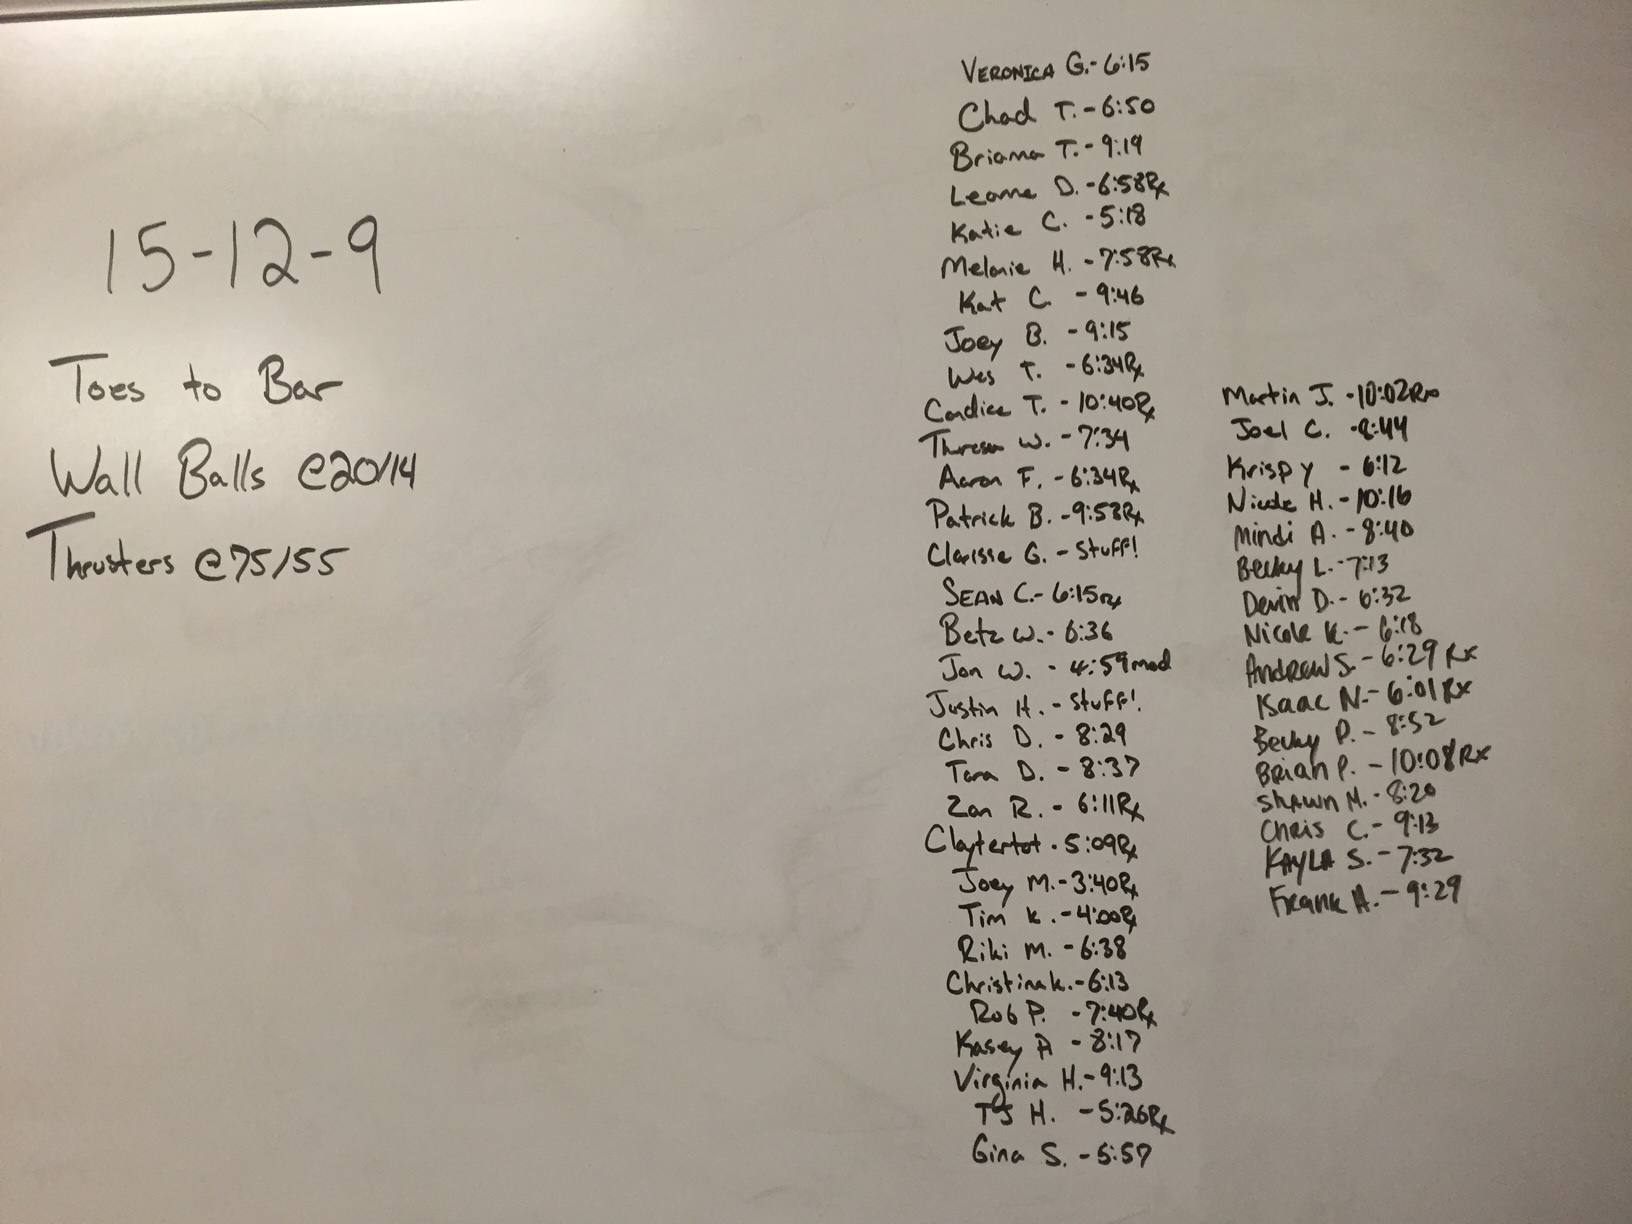 15-12-9
Toes to Bar
Wall Balls @20/14
Thrusters @75/55
VERONICA G.- 6:15
Chad T. - 6:50
Briana T. - 9:19
Leanne D. - 6:58Rx
Katie C. - 5:18
Melanie H. - 7:58Rx
Kat C. - 9:46
Joey B. - 9:15
Wes T. - 6:34Rx
Candice T. - 10:40Rx
Theresa W. - 7:34
Aaron F. - 6:34Rx
Patrick B. - 9:58Rx
Clarisse G. - Stuff!
SEAN C.- 6:15Rx
Betz W. - 6:36
Jon W. - 4:59mod
Justin H. - Stuff!
Chris D. - 8:29
Tara D. - 8:37
Zan R. - 6:11Rx
Claytertot - 5:09Rx
Joey M. - 3:40Rx
Tim K. - 4:00Rx
Riki M. - 6:38
Christina K. - 6:13
Rob P. - 7:40Rx
Kasey A - 8:17
Virginia H. - 9:13
TJ H. - 5:26Rx
Gina S. - 5:57
Martin J. - 10:02Rx
Joel C. - 8:44
Krispy - 6:12
Nicole H. - 10:16
Mindi A. - 8:40
Becky L. - 7:13
Devin D. - 6:32
Nicole K. - 6:18
ANDREW S. - 6:29 Rx
ISAAC N. - 6:01 Rx
Becky P. - 8:52
BRIAN P. - 10:08 Rx
SHAWN M. - 8:20
CHRIS C. - 9:13
KAYLA S. - 7:32
FRANK A. - 9:29